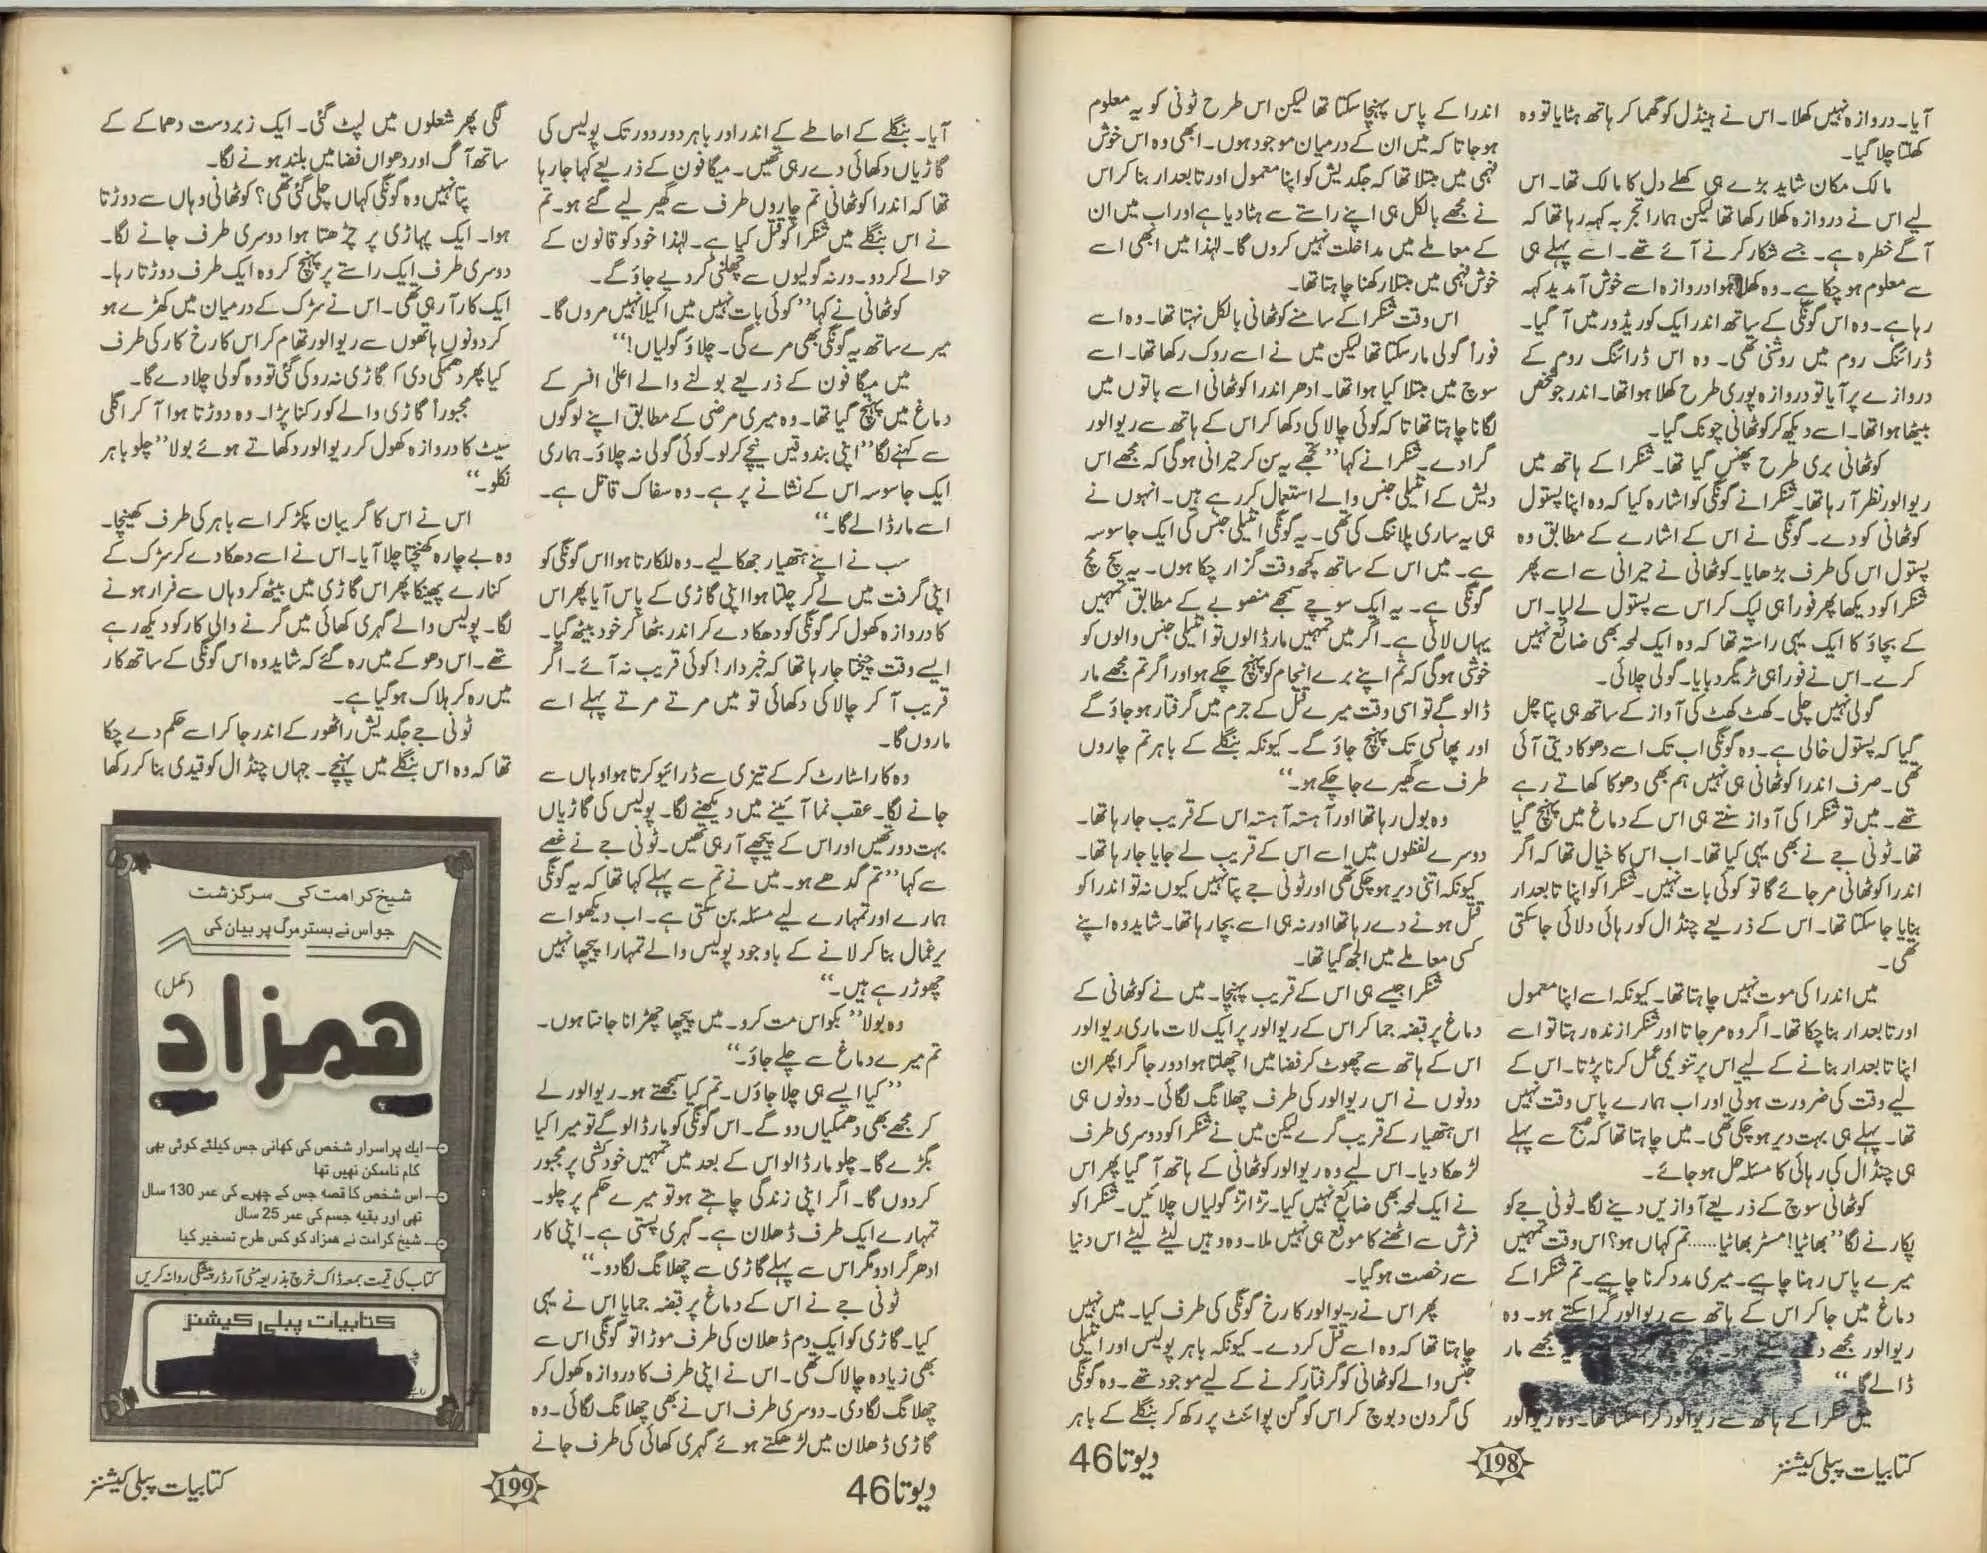 آیا۔ دروازہ نہیں کھلا۔ اس نے ہینڈل کو گھما کر ہاتھ ہٹایا تو وہ
کھلتا چلا گیا۔
مالک مکان شاید بڑے ہی کھلے دل کا مالک تھا۔ اس
لیے اس نے دروازہ کھلا رکھا تھا لیکن ہمارا تجربہ کہہ رہا تھا کہ
آگے خطرہ ہے۔ جسے شکار کرنے آئے تھے۔ اسے پہلے ہی
سے معلوم ہو چکا ہے۔ وہ کھلا ہوا دروازہ اسے خوش آمدید کہہ
رہا ہے۔ وہ اس گونگی کے ساتھ اندر ایک کوریڈور میں آ گیا۔
ڈرائنگ روم میں روشنی تھی۔ وہ اس ڈرائنگ روم کے
دروازے پر آیا تو دروازہ پوری طرح کھلا ہوا تھا۔ اندر جو شخص
بیٹھا ہوا تھا۔ اسے دیکھ کر کوٹھانی چونک گیا۔
کوٹھانی بری طرح پھنس گیا تھا۔ شنکرا کے ہاتھ میں
ریوالور نظر آ رہا تھا۔ شنکرا نے گونگی کو اشارہ کیا کہ وہ اپنا پستول
کوٹھانی کو دے۔ گونگی نے اس کے اشارے کے مطابق وہ
پستول اس کی طرف بڑھایا۔ کوٹھانی نے حیرانی سے اسے پھر
شنکرا کو دیکھا پھر فوراً ہی لپک کر اس سے پستول لے لیا۔ اس
کے بچاؤ کا ایک یہی راستہ تھا کہ وہ ایک لمحہ بھی ضائع نہیں
کرے۔ اس نے فوراً ہی ٹریگر دبایا۔ گولی چلائی۔
گولی نہیں چلی۔ کھٹ کھٹ کی آواز کے ساتھ ہی پتا چل
گیا کہ پستول خالی ہے۔ وہ گونگی اب تک اسے دھوکا دیتی آئی
تھی۔ صرف اندرا کوٹھانی ہی نہیں ہم بھی دھوکا کھاتے رہے
تھے۔ میں تو شنکرا کی آواز سنتے ہی اس کے دماغ میں پہنچ گیا
تھا۔ ٹونی جے نے بھی یہی کیا تھا۔ اب اس کا خیال تھا کہ اگر
اندرا کوٹھانی مر جائے گا تو کوئی بات نہیں۔ شنکرا کو اپنا تابعدار
بنایا جا سکتا تھا۔ اس کے ذریعے چنڈال کو رہائی دلائی جا سکتی
تھی۔
میں اندرا کی موت نہیں چاہتا تھا۔ کیونکہ اسے اپنا معمول
اور تابعدار بنا چکا تھا۔ اگر وہ مر جاتا اور شنکرا زندہ رہتا تو اسے
اپنا تابعدار بنانے کے لیے اس پر تنویمی عمل کرنا پڑتا۔ اس کے
لیے وقت کی ضرورت ہوتی اور اب ہمارے پاس وقت نہیں
تھا۔ پہلے ہی بہت دیر ہو چکی تھی۔ میں چاہتا تھا کہ صبح سے پہلے
ہی چنڈال کی رہائی کا مسئلہ حل ہو جائے۔
کوٹھانی سوچ کے ذریعے آوازیں دینے لگا۔ ٹونی جے کو
پکارنے لگا ”بھاٹیا! مسٹر بھاٹیا...... تم کہاں ہو؟ اس وقت تمہیں
میرے پاس رہنا چاہیے۔ میری مدد کرنا چاہیے۔ تم شنکرا کے
دماغ میں جا کر اس کے ہاتھ سے ریوالور گرا سکتے ہو۔ وہ
ریوالور مجھے دے مجھے مار
ڈالے گا۔“
میں شنکرا کے ہاتھ سے ریوالور گرا سکتا تھا۔ وہ ریوالور
کتابیات پبلی کیشنز
198
اندرا کے پاس پہنچا سکتا تھا لیکن اس طرح ٹونی کو یہ معلوم
ہو جاتا کہ میں ان کے درمیان موجود ہوں۔ ابھی وہ اس خوش
فہمی میں مبتلا تھا کہ جگدیش کو اپنا معمول اور تابعدار بنا کر اس
نے مجھے بالکل ہی اپنے راستے سے ہٹا دیا ہے اور اب میں ان
کے معاملے میں مداخلت نہیں کروں گا۔ لہٰذا میں ابھی اسے
خوش فہمی میں مبتلا رکھنا چاہتا تھا۔
اس وقت شنکرا کے سامنے کوٹھانی بالکل نہتا تھا۔ وہ اسے
فوراً گولی مار سکتا تھا لیکن میں نے اسے روک رکھا تھا۔ اسے
سوچ میں مبتلا کیا ہوا تھا۔ ادھر اندرا کوٹھانی اسے باتوں میں
لگانا چاہتا تھا تا کہ کوئی چالاکی دکھا کر اس کے ہاتھ سے ریوالور
گرا دے۔ شنکرا نے کہا ”تجھے یہ سن کر حیرانی ہوگی کہ مجھے اس
دیش کے انٹیلی جنس والے استعمال کر رہے ہیں۔ انہوں نے
ہی یہ ساری پلاننگ کی تھی۔ یہ گونگی انٹیلی جنس کی ایک جاسوسہ
ہے۔ میں اس کے ساتھ کچھ وقت گزار چکا ہوں۔ یہ سچ مچ
گونگی ہے۔ یہ ایک سوچے سمجھے منصوبے کے مطابق تمہیں
یہاں لائی ہے۔ اگر میں تمہیں مار ڈالوں تو انٹیلی جنس والوں کو
خوشی ہوگی کہ تم اپنے برے انجام کو پہنچ چکے ہو اور اگر تم مجھے مار
ڈالو گے تو اسی وقت میرے قتل کے جرم میں گرفتار ہو جاؤ گے
اور پھانسی تک پہنچ جاؤ گے۔ کیونکہ بنگلے کے باہر تم چاروں
طرف سے گھیرے جا چکے ہو۔“
وہ بول رہا تھا اور آہستہ آہستہ اس کے قریب جا رہا تھا۔
دوسرے لفظوں میں اسے اس کے قریب لے جایا جا رہا تھا۔
کیونکہ اتنی دیر ہو چکی تھی اور ٹونی جے پتا نہیں کیوں نہ تو اندرا کو
قتل ہونے دے رہا تھا اور نہ ہی اسے بچا رہا تھا۔ شاید وہ اپنے
کسی معاملے میں الجھ گیا تھا۔
شنکرا جیسے ہی اس کے قریب پہنچا۔ میں نے کوٹھانی کے
دماغ پر قبضہ جما کر اس کے ریوالور پر ایک لات ماری ریوالور
اس کے ہاتھ سے چھوٹ کر فضا میں اچھلتا ہوا دور جا گرا پھر ان
دونوں نے اس ریوالور کی طرف چھلانگ لگائی۔ دونوں ہی
اس ہتھیار کے قریب گرے لیکن میں نے شنکرا کو دوسری طرف
لڑھکا دیا۔ اس لیے وہ ریوالور کوٹھانی کے ہاتھ آ گیا پھر اس
نے ایک لمحہ بھی ضائع نہیں کیا۔ تڑاتڑ گولیاں چلائیں۔ شنکرا کو
فرش سے اٹھنے کا موقع ہی نہیں ملا۔ وہ وہیں لیٹے لیٹے اس دنیا
سے رخصت ہو گیا۔
پھر اس نے ریوالور کا رخ گونگی کی طرف کیا۔ میں نہیں
چاہتا تھا کہ وہ اسے قتل کر دے۔ کیونکہ باہر پولیس اور انٹیلی
جنس والے کوٹھانی کو گرفتار کرنے کے لیے موجود تھے۔ وہ گونگی
کی گردن دبوچ کر اس کو گن پوائنٹ پر رکھ کر بنگلے کے باہر
دیوتا 46
آیا۔ بنگلے کے احاطے کے اندر اور باہر دور دور تک پولیس کی
گاڑیاں دکھائی دے رہی تھیں۔ میگا فون کے ذریعے کہا جا رہا
تھا کہ اندرا کوٹھانی تم چاروں طرف سے گھیر لیے گئے ہو۔ تم
نے اس بنگلے میں شنکرا کو قتل کیا ہے۔ لہٰذا خود کو قانون کے
حوالے کر دو۔ ورنہ گولیوں سے چھلنی کر دیے جاؤ گے۔
کوٹھانی نے کہا ”کوئی بات نہیں میں اکیلا نہیں مروں گا۔
میرے ساتھ یہ گونگی بھی مرے گی۔ چلاؤ گولیاں!“
میں میگا فون کے ذریعے بولنے والے اعلیٰ افسر کے
دماغ میں پہنچ گیا تھا۔ وہ میری مرضی کے مطابق اپنے لوگوں
سے کہنے لگا ”اپنی بندوقیں نیچے کر لو۔ کوئی گولی نہ چلاؤ۔ ہماری
ایک جاسوسہ اس کے نشانے پر ہے۔ وہ سفاک قاتل ہے۔
اسے مار ڈالے گا۔“
سب نے اپنے ہتھیار جھکا لیے۔ وہ للکارتا ہوا اس گونگی کو
اپنی گرفت میں لے کر چلتا ہوا اپنی گاڑی کے پاس آیا پھر اس
کا دروازہ کھول کر گونگی کو دھکا دے کر اندر بٹھا کر خود بیٹھ گیا۔
ایسے وقت چیختا جا رہا تھا کہ خبردار! کوئی قریب نہ آئے۔ اگر
قریب آ کر چالاکی دکھائی تو میں مرتے مرتے پہلے اسے
ماروں گا۔
وہ کار اسٹارٹ کر کے تیزی سے ڈرائیو کرتا ہوا وہاں سے
جانے لگا۔ عقب نما آئینے میں دیکھنے لگا۔ پولیس کی گاڑیاں
بہت دور تھیں اور اس کے پیچھے آ رہی تھیں۔ ٹونی جے نے غصے
سے کہا ”تم گدھے ہو۔ میں نے تم سے پہلے کہا تھا کہ یہ گونگی
ہمارے اور تمہارے لیے مسئلہ بن سکتی ہے۔ اب دیکھو اسے
یرغمال بنا کر لانے کے باوجود پولیس والے تمہارا پیچھا نہیں
چھوڑ رہے ہیں۔“
وہ بولا ”بکواس مت کرو۔ میں پیچھا چھڑانا جانتا ہوں۔
تم میرے دماغ سے چلے جاؤ۔“
”کیا ایسے ہی چلا جاؤں۔ تم کیا سمجھتے ہو۔ ریوالور لے
کر مجھے بھی دھمکیاں دو گے۔ اس گونگی کو مار ڈالو گے تو میرا کیا
بگڑے گا۔ چلو مار ڈالو اس کے بعد میں تمہیں خودکشی پر مجبور
کر دوں گا۔ اگر اپنی زندگی چاہتے ہو تو میرے حکم پر چلو۔
تمہارے ایک طرف ڈھلان ہے۔ گہری پستی ہے۔ اپنی کار
ادھر گرا دو مگر اس سے پہلے گاڑی سے چھلانگ لگا دو۔“
ٹونی جے نے اس کے دماغ پر قبضہ جمایا اس نے یہی
کیا۔ گاڑی کو ایک دم ڈھلان کی طرف موڑا تو گونگی اس سے
بھی زیادہ چالاک تھی۔ اس نے اپنی طرف کا دروازہ کھول کر
چھلانگ لگا دی۔ دوسری طرف اس نے بھی چھلانگ لگائی۔ وہ
گاڑی ڈھلان میں لڑھکتے ہوئے گہری کھائی کی طرف جانے
دیوتا 46
199
لگی پھر شعلوں میں لپٹ گئی۔ ایک زبردست دھماکے کے
ساتھ آگ اور دھواں فضا میں بلند ہونے لگا۔
پتا نہیں وہ گونگی کہاں چلی گئی تھی؟ کوٹھانی وہاں سے دوڑتا
ہوا۔ ایک پہاڑی پر چڑھتا ہوا دوسری طرف جانے لگا۔
دوسری طرف ایک راستے پر پہنچ کر وہ ایک طرف دوڑتا رہا۔
ایک کار آ رہی تھی۔ اس نے سڑک کے درمیان میں کھڑے ہو
کر دونوں ہاتھوں سے ریوالور تھام کر اس کا رخ کار کی طرف
کیا پھر دھمکی دی گاڑی نہ روکی گئی تو وہ گولی چلا دے گا۔
مجبوراً گاڑی والے کو رکنا پڑا۔ وہ دوڑتا ہوا آ کر اگلی
سیٹ کا دروازہ کھول کر ریوالور دکھاتے ہوئے بولا ”چلو باہر
نکلو۔“
اس نے اس کا گریبان پکڑ کر اسے باہر کی طرف کھینچا۔
وہ بے چارہ کھنچتا چلا آیا۔ اس نے اسے دھکا دے کر سڑک کے
کنارے پھینکا پھر اس گاڑی میں بیٹھ کر وہاں سے فرار ہونے
لگا۔ پولیس والے گہری کھائی میں گرنے والی کار کو دیکھ رہے
تھے۔ اس دھوکے میں رہ گئے کہ شاید وہ اس گونگی کے ساتھ کار
میں رہ کر ہلاک ہو گیا ہے۔
ٹونی جے جگدیش راٹھور کے اندر جا کر اسے حکم دے چکا
تھا کہ وہ اس بنگلے میں پہنچے۔ جہاں چنڈال کو قیدی بنا کر رکھا
شیخ کرامت کی سرگزشت
جو اس نے بستر مرگ پر بیان کی
ھمزاد (مکمل)
ایک پراسرار شخص کی کہانی جس کیلئے کوئی بھی
کام ناممکن نہیں تھا
اس شخص کا قصہ جس کے چہرے کی عمر 130 سال
تھی اور بقیہ جسم کی عمر 25 سال
شیخ کرامت نے ھمزاد کو کس طرح تسخیر کیا
کتاب کی قیمت بمعہ ڈاک خرچ بذریعہ منی آرڈر پیشگی روانہ کریں
کتابیات پبلی کیشنز
کتابیات پبلی کیشنز